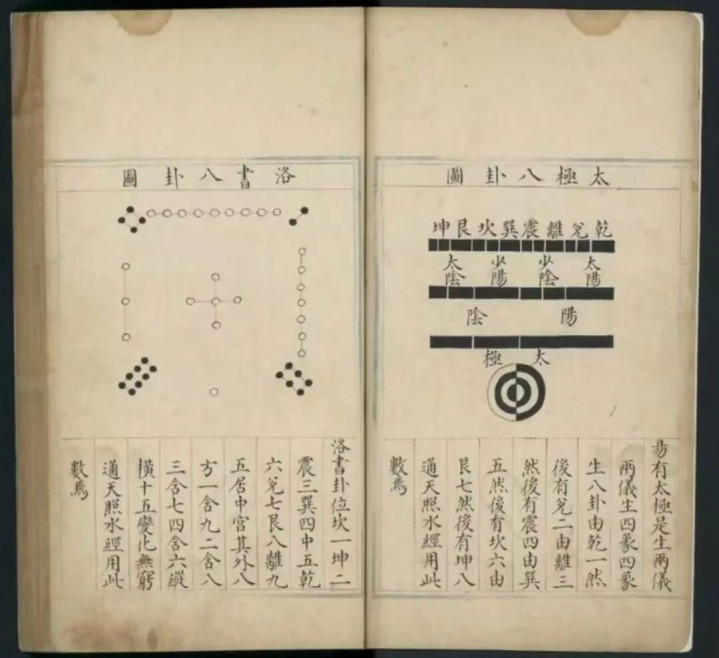 太極八卦圖
乾兌離震巽坎艮坤
太陽
少陰
少陽
太陰
陽
陰
太極
易有太極是生兩儀
兩儀生四象四象
生八卦由乾一然
後有兌二由離三
然後有震四由巽
五然後有坎六由
艮七然後有坤八
通天照水經用此
數焉
洛書八卦圖
洛書卦位坎一坤二
震三巽四中五乾
六兌七艮八離九
五居中宮其外八
方一含九二含八
三含七四含六縱
橫十五變化無窮
通天照水經用此
數焉